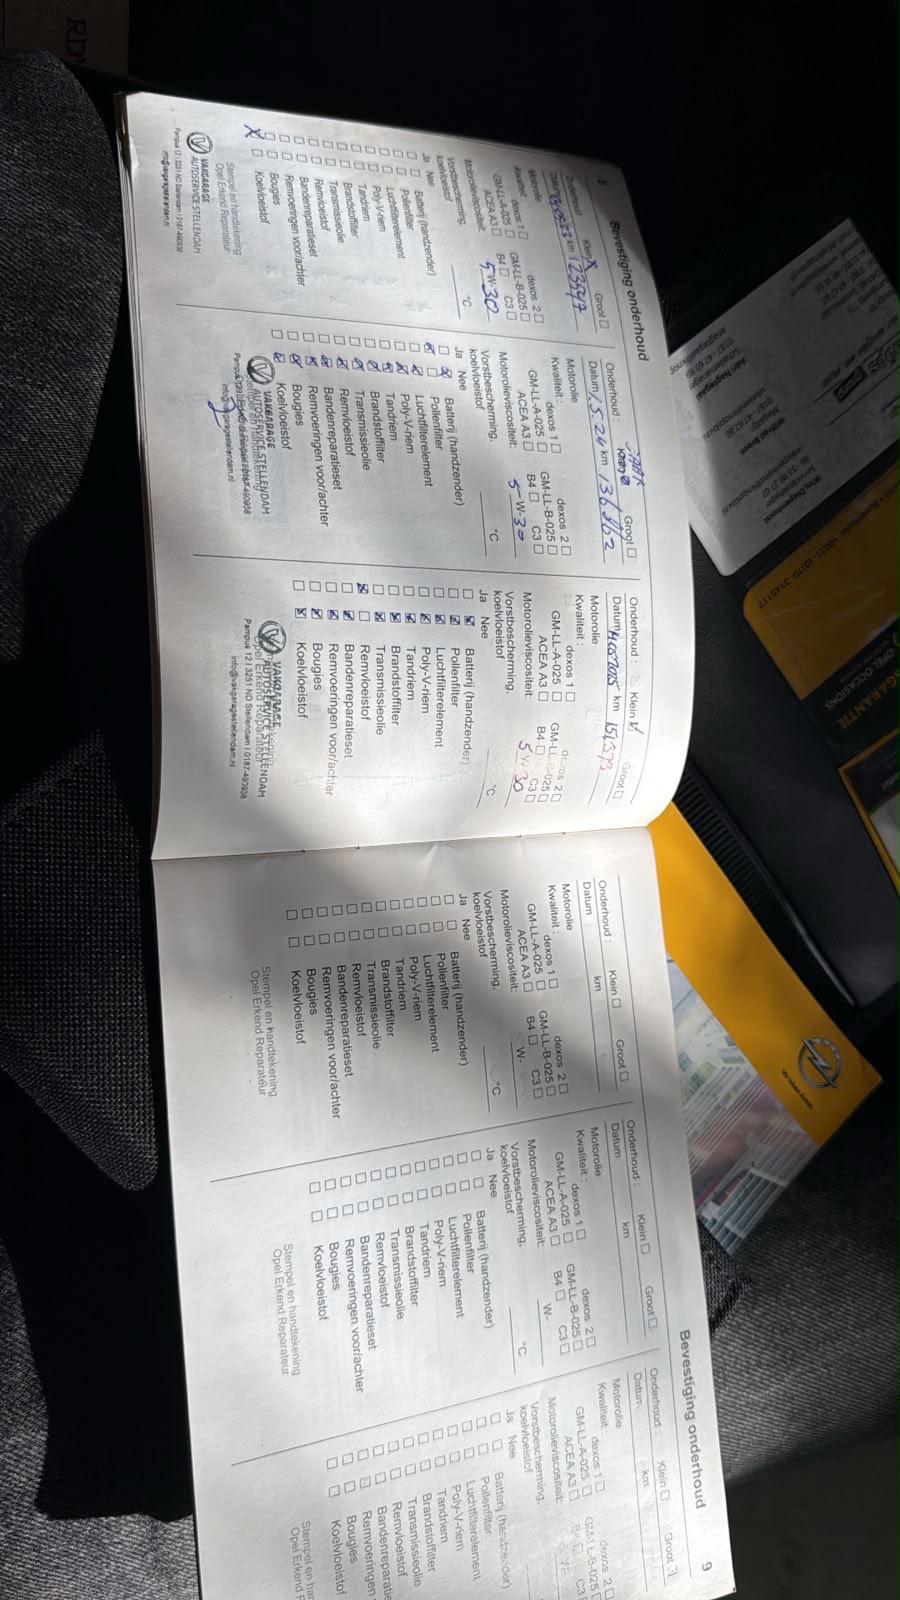 8
Bevestiging onderhoud
Onderhoud Klein Groot
Datum km 123547
Motorolie
Kwaliteit: dexos 1 dexos 2
GM-LL-A-025 GM-LL-B-025
ACEA A3 B4 C3
Motorolieviscositeit: 5W-30
Vorstbescherming,
koelvloeistof °C
Ja Nee
Batterij (handzender)
Pollenfilter
Luchtfilterelement
Poly-V-riem
Tandriem
Brandstoffilter
Transmissieolie
Remvloeistof
Bandenreparatieset
Remvoeringen voor/achter
Bougies
Koelvloeistof
Stempel en handtekening
Opel Erkend Reparateur
VAKGARAGE
AUTOSERVICE STELLENDAM
Pampus 12 | 3251 ND Stellendam | 0187-490938
Onderhoud : Groot
Datum 1.5.24 km
Motorolie
Kwaliteit : dexos 1 dexos 2
GM-LL-A-025 GM-LL-B-025
ACEA A3 B4 C3
Motorolieviscositeit: 5 W-30
Vorstbescherming,
koelvloeistof °C
Ja Nee
Batterij (handzender)
Pollenfilter
Luchtfilterelement
Poly-V-riem
Tandriem
Brandstoffilter
Transmissieolie
Remvloeistof
Bandenreparatieset
Remvoeringen voor/achter
Bougies
Koelvloeistof
VAKGARAGE
AUTOSERVICE STELLENDAM
Onderhoud : Klein Groot
Datum km 151373
Motorolie
Kwaliteit : dexos 1 dexos 2
GM-LL-A-025 GM-LL-B-025
ACEA A3 B4 C3
Motorolieviscositeit: 5W-30
Vorstbescherming,
koelvloeistof °C
Ja Nee
Batterij (handzender)
Pollenfilter
Luchtfilterelement
Poly-V-riem
Tandriem
Brandstoffilter
Transmissieolie
Remvloeistof
Bandenreparatieset
Remvoeringen voor/achter
Bougies
Koelvloeistof
VAKGARAGE
AUTOSERVICE STELLENDAM
Opel Erkend Reparateur
Pampus 12 | 3251 ND Stellendam | 0187-490938
info@vakgaragestellendam.nl
Bevestiging onderhoud
9
Onderhoud : Klein Groot
Datum km
Motorolie
Kwaliteit : dexos 1 dexos 2
GM-LL-A-025 GM-LL-B-025
ACEA A3 B4 C3
Motorolieviscositeit: W-
Vorstbescherming,
koelvloeistof °C
Ja Nee
Batterij (handzender)
Pollenfilter
Luchtfilterelement
Poly-V-riem
Tandriem
Brandstoffilter
Transmissieolie
Remvloeistof
Bandenreparatieset
Remvoeringen voor/achter
Bougies
Koelvloeistof
Stempel en handtekening
Opel Erkend Reparateur
Onderhoud : Klein Groot
Datum km
Motorolie
Kwaliteit : dexos 1 dexos 2
GM-LL-A-025 GM-LL-B-025
ACEA A3 B4 C3
Motorolieviscositeit: W-
Vorstbescherming,
koelvloeistof °C
Ja Nee
Batterij (handzender)
Pollenfilter
Luchtfilterelement
Poly-V-riem
Tandriem
Brandstoffilter
Transmissieolie
Remvloeistof
Bandenreparatieset
Remvoeringen voor/achter
Bougies
Koelvloeistof
Stempel en handtekening
Opel Erkend Reparateur
Onderhoud : Klein Groot
Datum km
Motorolie
Kwaliteit : dexos 1 dexos 2
GM-LL-A-025 GM-LL-B-025
ACEA A3 B4 C3
Motorolieviscositeit:
Vorstbescherming,
koelvloeistof
Ja Nee
Batterij (handzender)
Pollenfilter
Luchtfilterelement
Poly-V-riem
Tandriem
Brandstoffilter
Transmissieolie
Remvloeistof
Bandenreparatie
Remvoeringen
Bougies
Koelvloeistof
Stempel en han
Opel Erkend R
OPEL OCCASIONS
GARANTIE